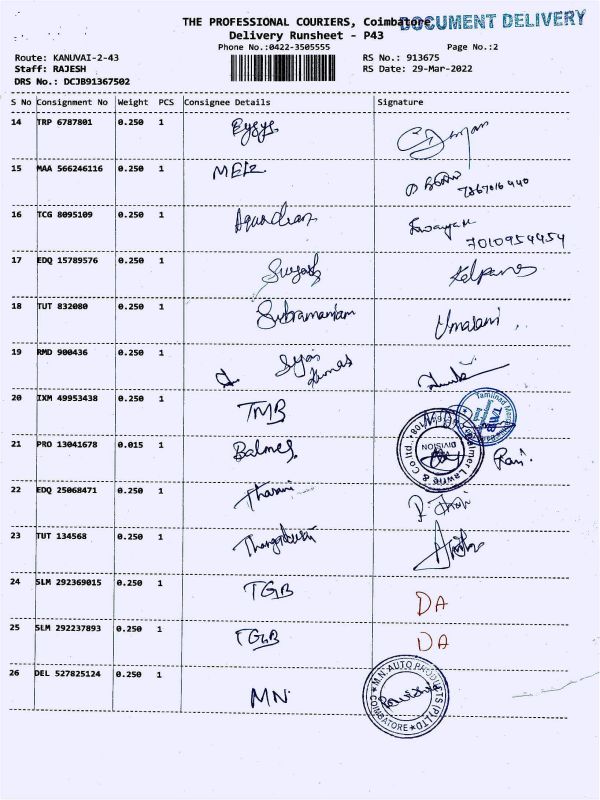 THE PROFESSIONAL COURIERS, Coimbatore
DOCUMENT DELIVERY
Delivery Runsheet - P43
Phone No.:0422-3505555
Page No.:2
Route: KANUVAI-2-43
RS No.: 913675
Staff: RAJESH
RS Date: 29-Mar-2022
DRS No.: DCJB91367502
S No Consignment No Weight PCS Consignee Details Signature
14 TRP 6787801 0.250 1
15 MAA 566246116 0.250 1
16 TCG 8095109 0.250 1
7010954454
17 EDQ 15789576 0.250 1
18 TUT 832080 0.250 1 Subramaniam Umarani
19 RMD 900436 0.250 1
20 IXM 49953438 0.250 1 TMB
21 PRO 13041678 0.015 1 Balmer
DIVISION
22 EDQ 25068471 0.250 1
23 TUT 134568 0.250 1
24 SLM 292369015 0.250 1 TGB DA
25 SLM 292237893 0.250 1 TGB DA
26 DEL 527825124 0.250 1 MN
M.N. AUTO PRODUCTS (P) LTD COIMBATORE